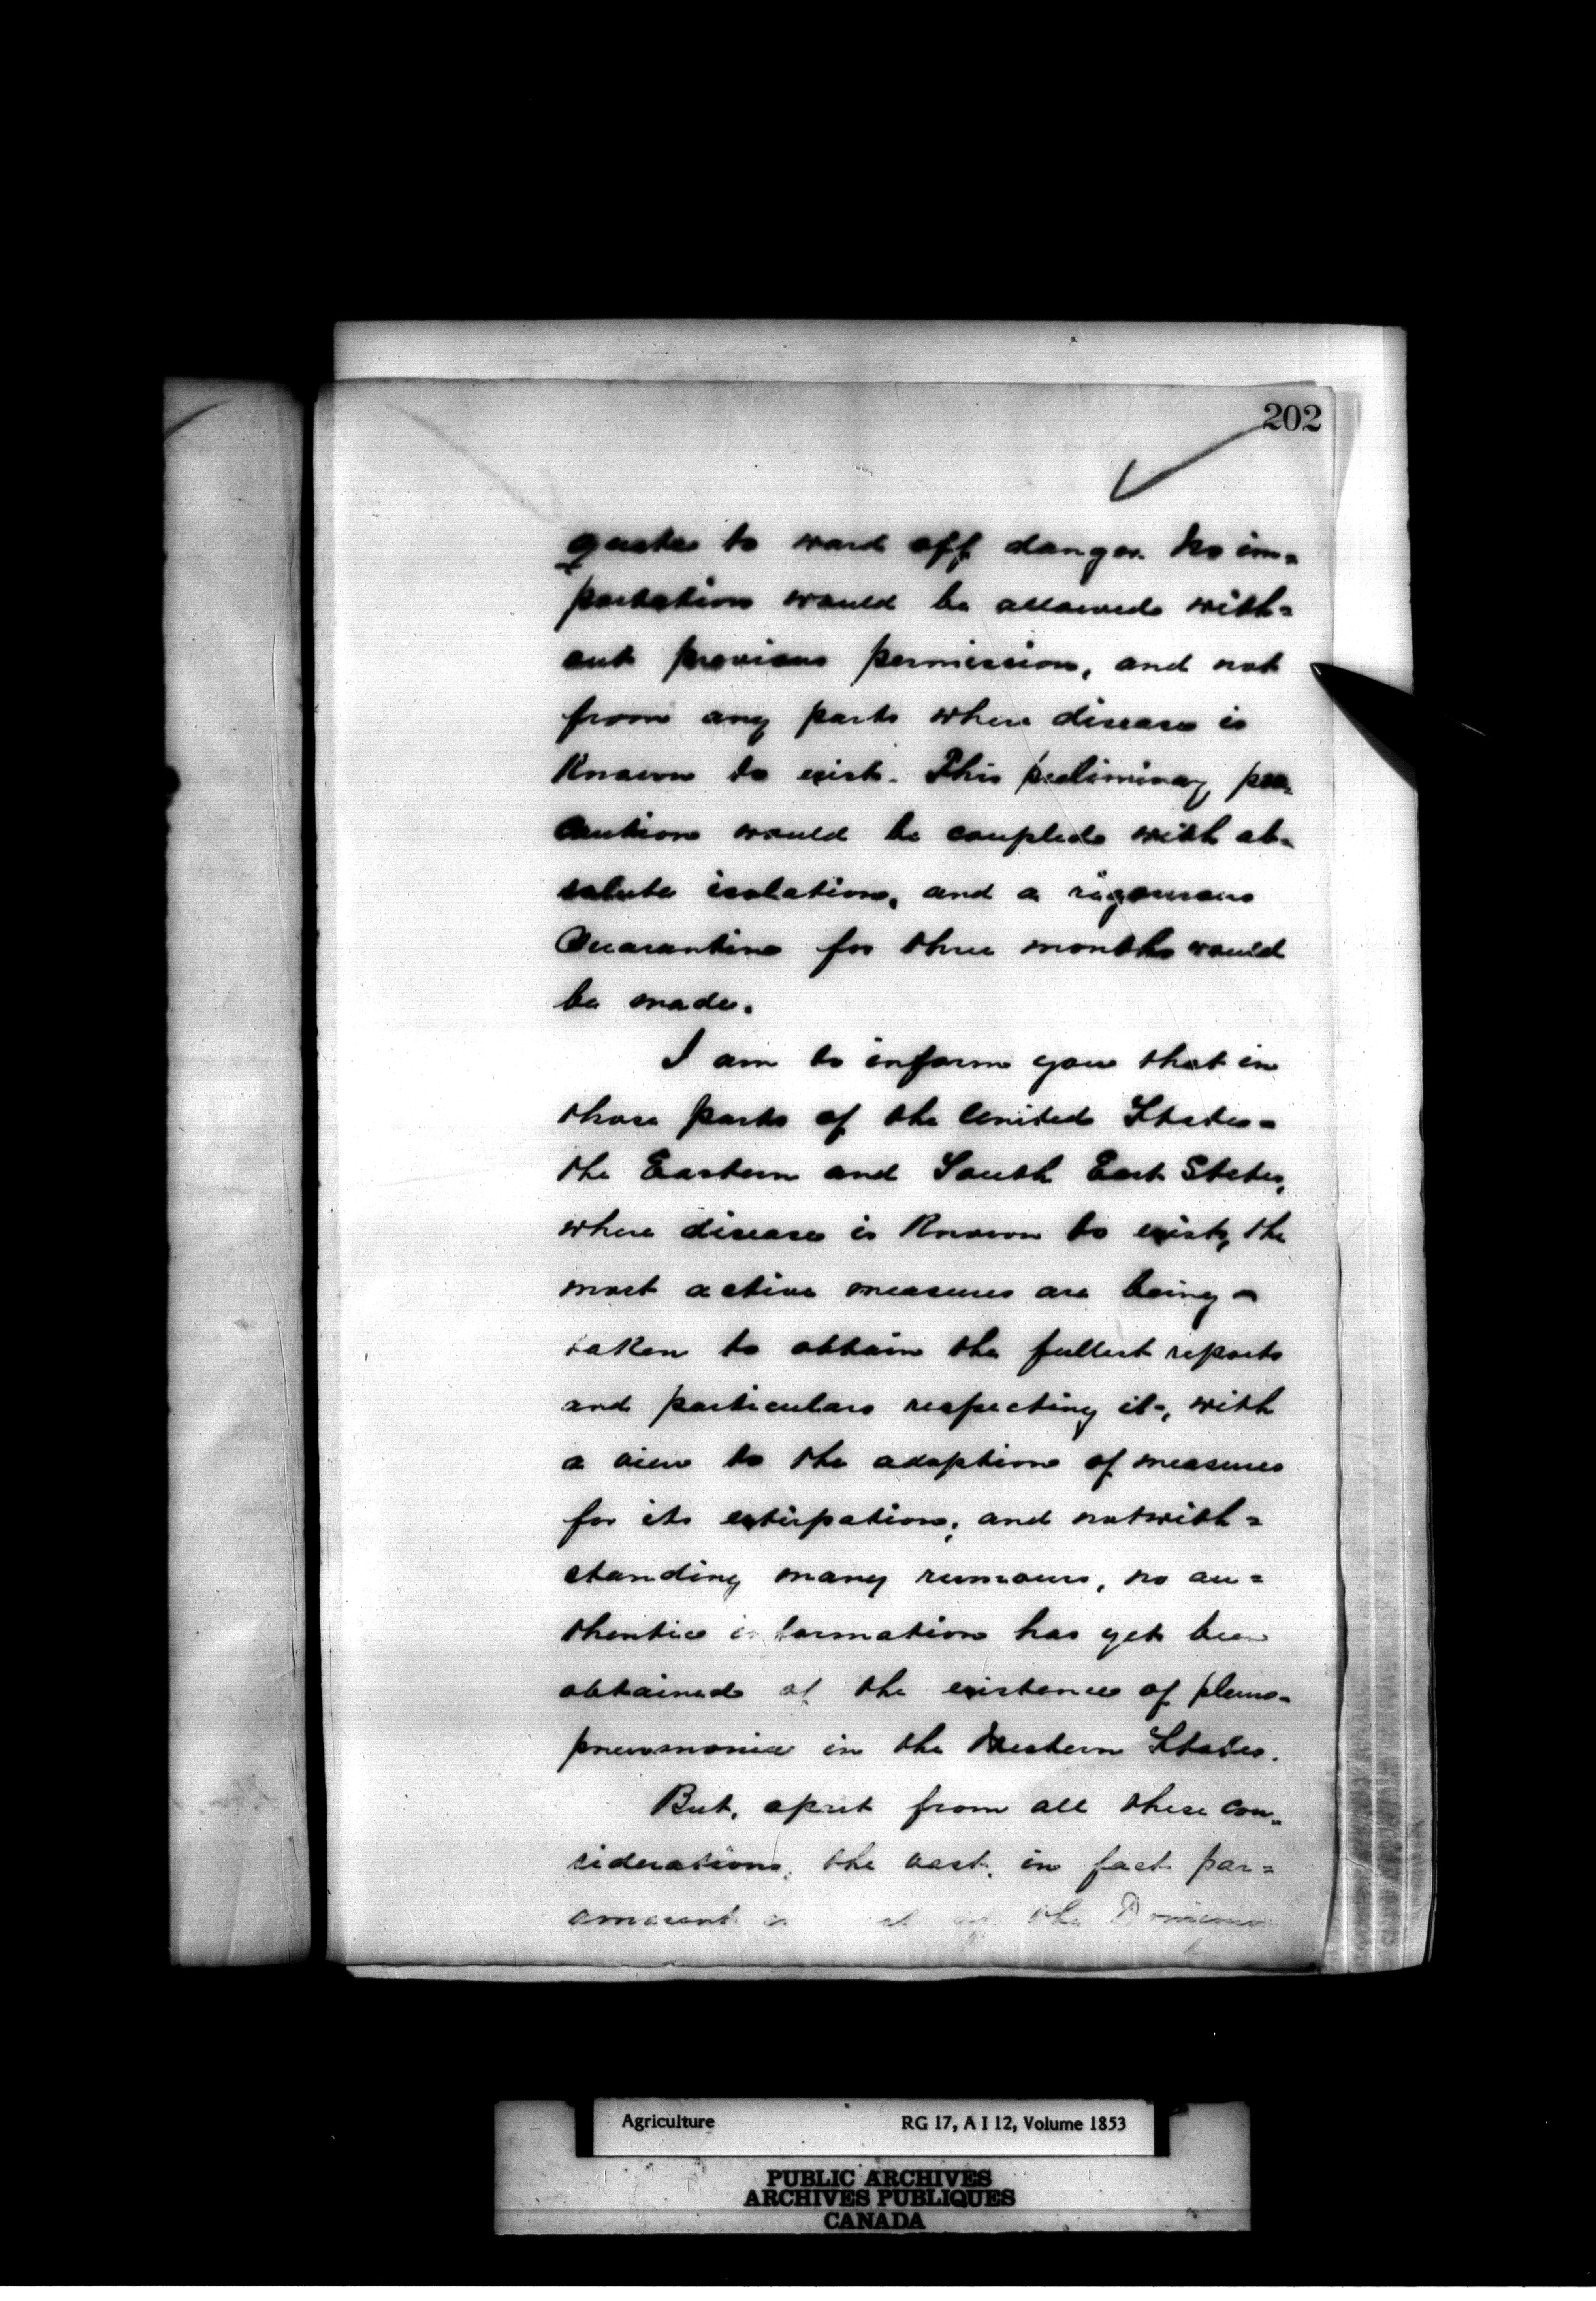 202
quate to ward off danger. No im=
portation would be allowed with=
out previous permission, and not
from any parts where disease is
Known to exist. This preliminary pre=
caution would be coupled with ab=
solute isolation, and a rigourous
Quarantine for three months would
be made.
I am to inform you that in
those parts of the United States -
the Eastern and South East States,
where disease is Known to exist, the
most active measures are being -
taken to obtain the fullest reports
and particulars respecting it -, with
a view to the adoption of measures
for its extirpation; and notwith=
standing many rumours, no au=
thentic information has yet been
obtained of the existence of pleuro=
pneumonia in the Western States.
But, apart from all these con=
siderations, the vast, in fact par=
amount the
Agriculture RG 17, A I 12, Volume 1853
PUBLIC ARCHIVES
ARCHIVES PUBLIQUES
CANADA